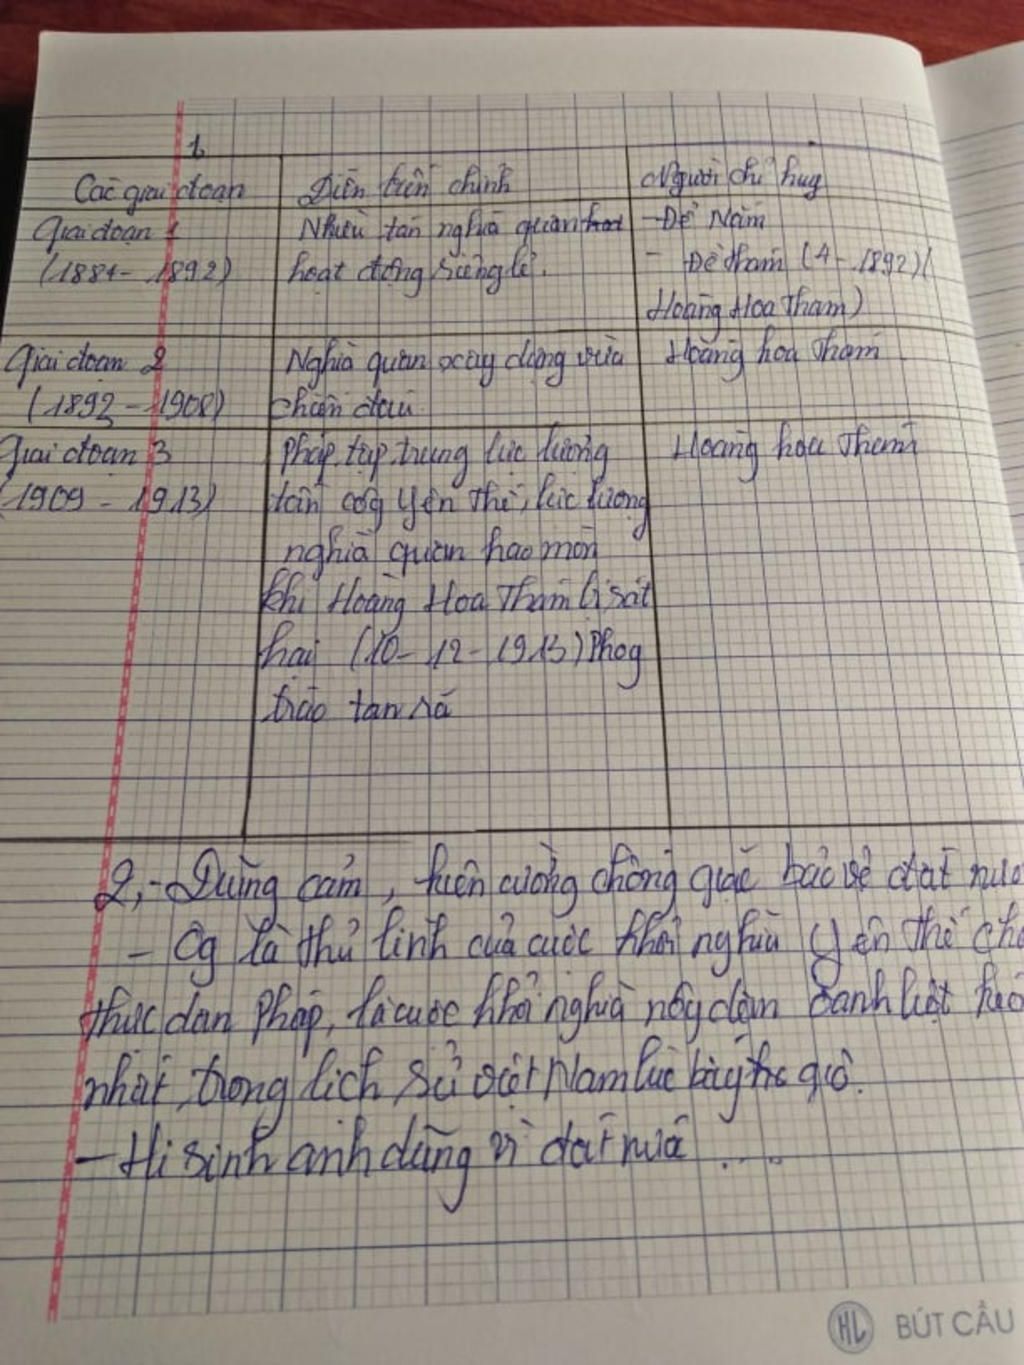 1
Các giai đoạn
Diễn biến chính
Người chỉ huy
Giai đoạn 1
(1884 - 1892)
Nhiều tán nghĩa quân hoạt
hoạt động riêng lẻ.
- Đề Nắm
- Đề Thám (4 - 1892) (
Hoàng Hoa Thám)
Giai đoạn 2
(1892 - 1908)
Nghĩa quân xây dựng vừa
chiến đấu
Hoàng hoa Thám
Giai đoạn 3
(1909 - 1913)
Pháp tập trung lực lượng
tấn côg Yên Thế, lực lượng
nghĩa quân hao mòn
khi Hoàng Hoa Thám bị sát
hại (10 - 12 - 1913) Phog
trào tan rã
Hoàng hoa Thám
2, - Dũng cảm, kiên cường chống giặc bảo vệ đất
- Ôg là thủ lĩnh của cuộc khởi nghĩa Yên Thế
thực dân Pháp, là cuộc khởi nghĩa nôg dân
nhất trong lịch sử việt Nam lúc bấy giờ.
- Hi sinh anh dũng vì đất nước ....
HL BÚT CẦU